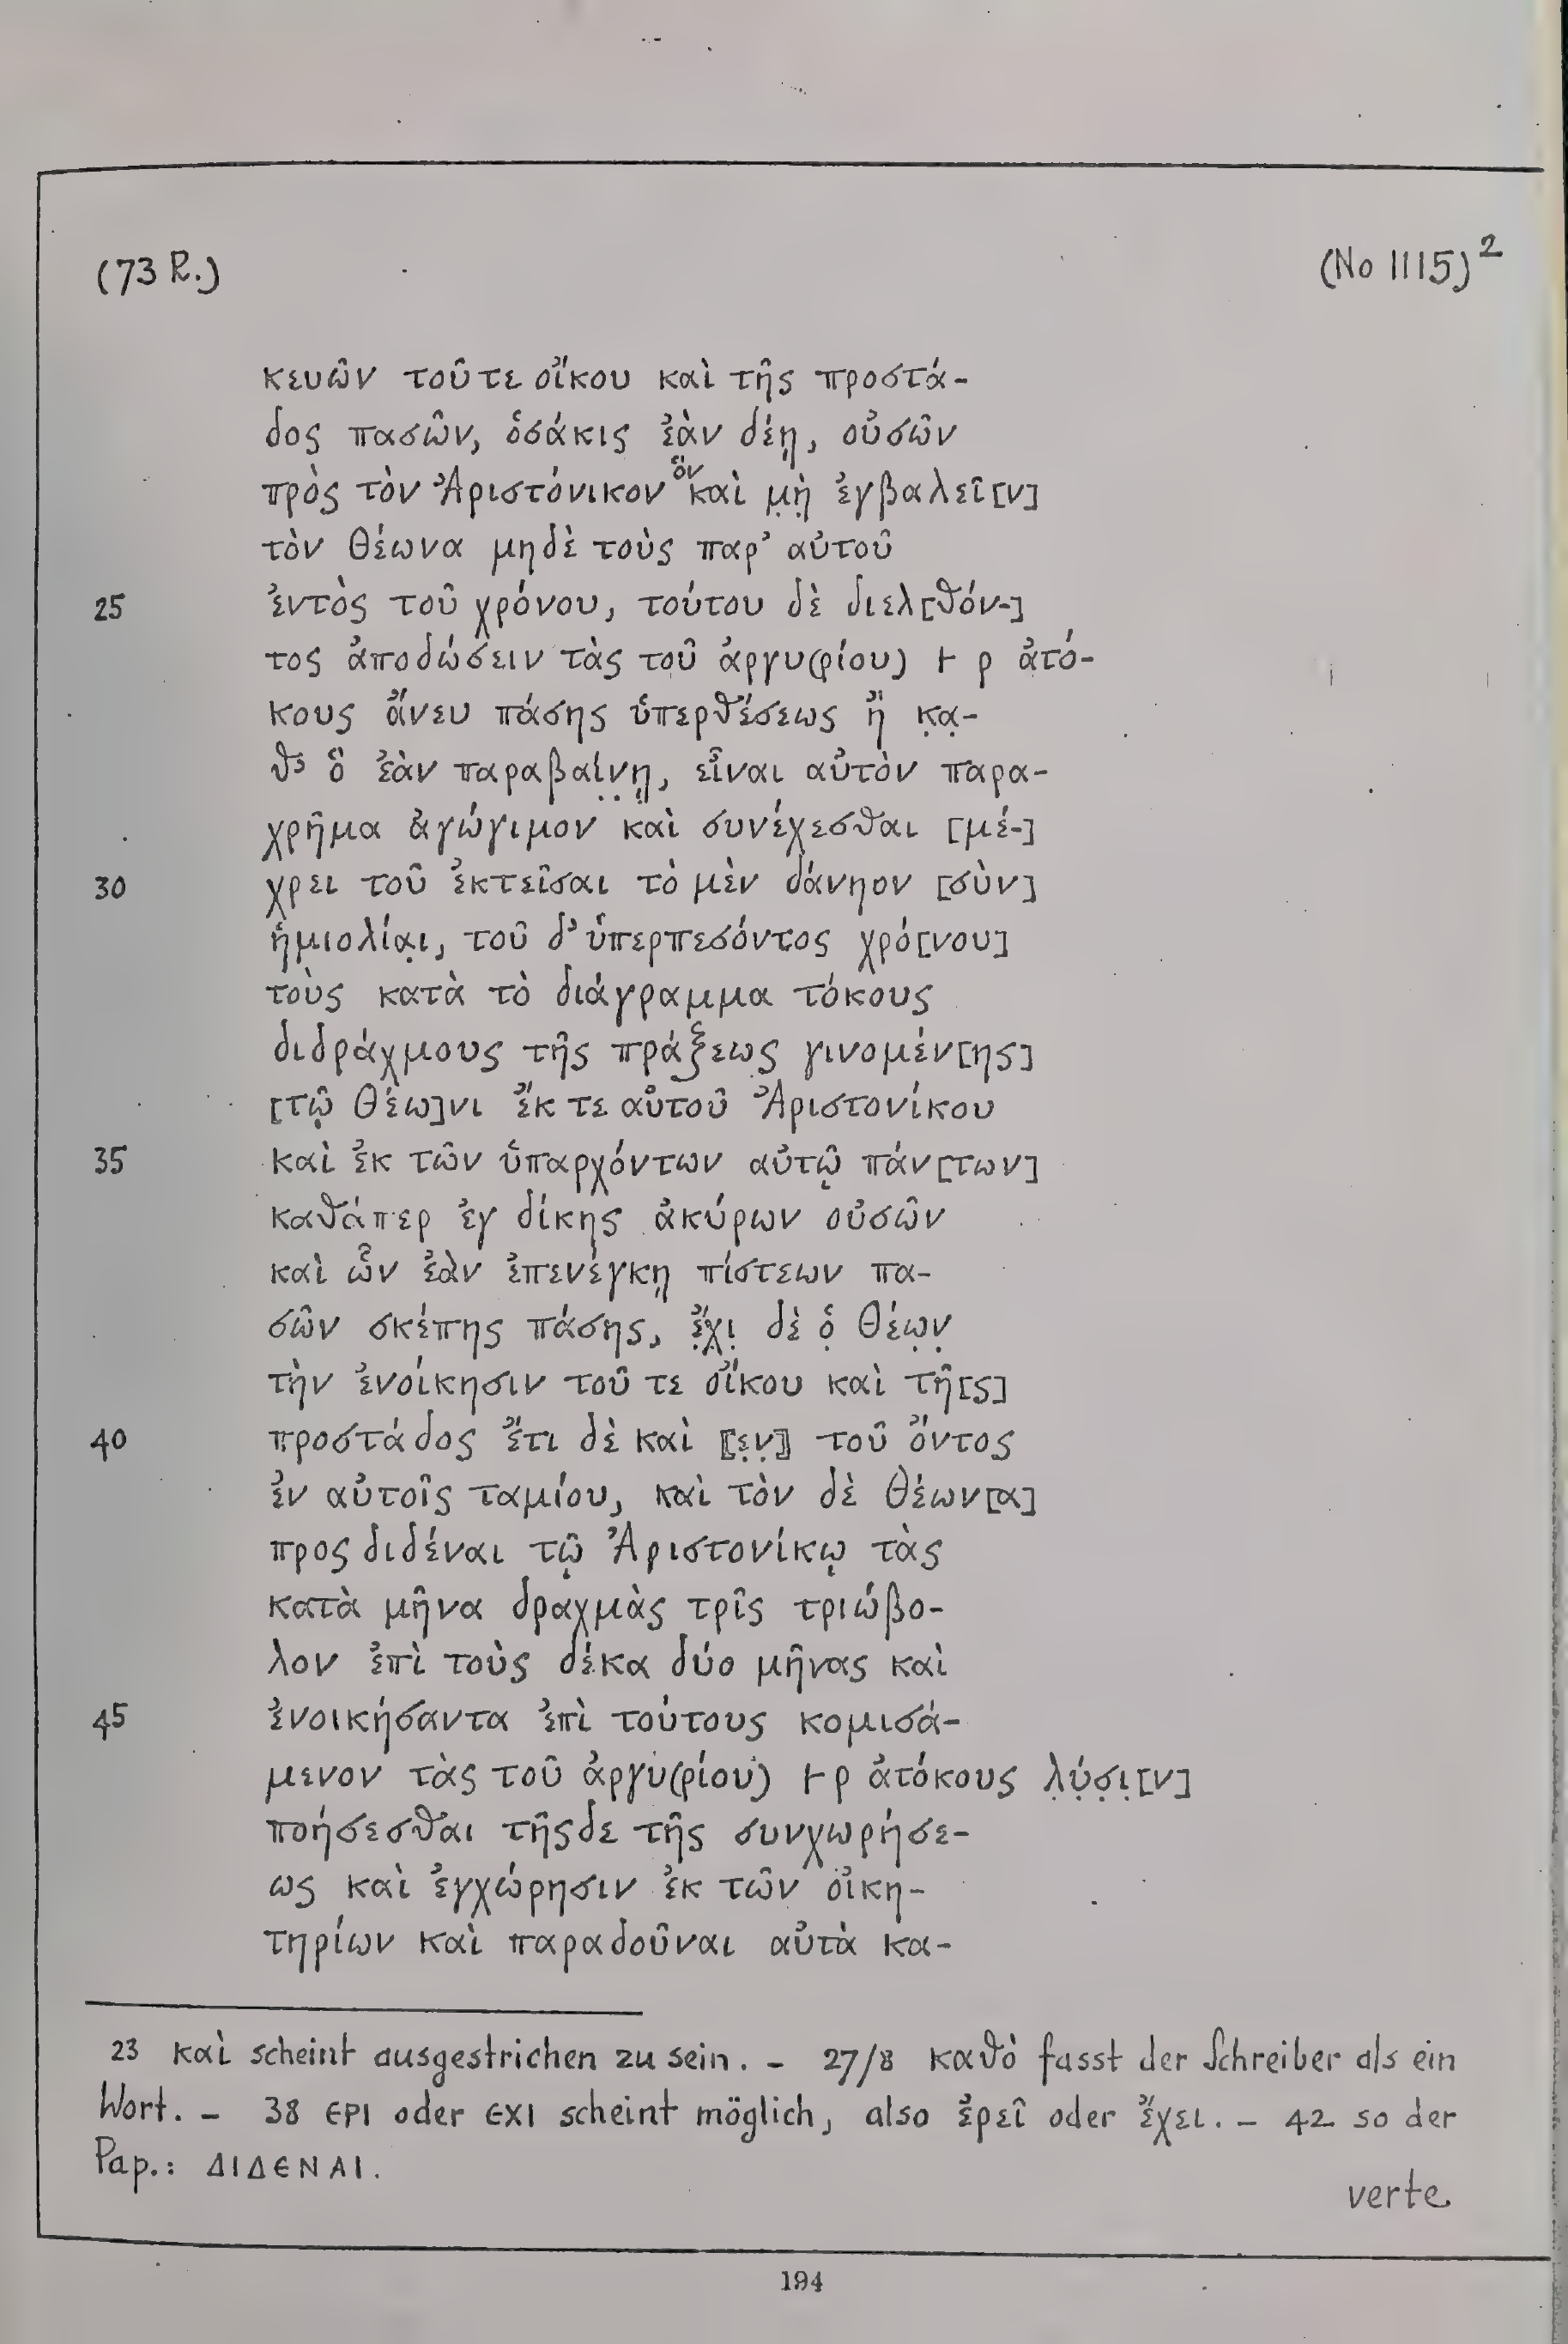 (73 R.) (No 1115)²
κευῶν τοῦ τε οἴκου καὶ τῆς προστά-
δος πασῶν, ὁσάκις ἐὰν δέῃ, οὐσῶν
πρὸς τὸν Ἀριστόνικον ὃν καὶ μ̣ὴ̣ ἐγβαλεῖ[ν]
τὸν Θέωνα μηδὲ τοὺς παρ’ αὐτοῦ
25 ἐντὸς τοῦ χρόνου, τούτου δὲ διελ[θόν-]
τος ἀποδώσειν τὰς τοῦ ἀργυ(ρίου) ⊢ ρ ἀτό-
κους ἄνευ πάσης ὑπερθέσεως ἢ κ̣α̣-
θ’ ὃ ἐὰν παραβαί̣ν̣ῃ̣, εἶναι αὐτὸν παρα-
χρῆμα ἀγώγιμον καὶ συνέχεσθαι [μέ-]
30 χρει τοῦ ἐκτεῖσαι τὸ μὲν δάνηον [σὺν]
ἡμιολία̣ι, τοῦ δ’ ὑπερπεσόντος χρό[νου]
τοὺς κατὰ τὸ διάγραμμα τόκους
διδράχμους τῆς πράξεως γινομέν[ης]
[τῷ Θέω]νι ἔκ τε αὐτοῦ Ἀριστονίκου
35 καὶ ἐκ τῶν ὑπαρχόντων αὐτῷ πάν[των]
καθάπερ ἐγ δίκης ἀκύρων οὐσῶν
καὶ ὧν ἐὰν ἐπενέγκῃ πίστεων πα-
σῶν σκέπης πάσης, ἔ̣χ̣ι̣ δὲ ὁ̣ Θέω̣ν̣
τὴν ἐνοίκησιν τοῦ τε οἴκου καὶ τῆ[ς]
40 προστάδος ἔτι δὲ καὶ ⟦ε̣ν̣⟧ τοῦ ὄντος
ἐν αὐτοῖς ταμίου, καὶ τὸν δὲ Θέων[α]
προςδιδέναι τῷ Ἀριστονίκῳ τὰς
κατὰ μῆνα δραχμὰς τρῖς τριώβο-
λον ἐπὶ τοὺς δέκα δύο μῆνας καὶ
45 ἐνοικήσαντα ἐπὶ τούτους κομισά-
μενον τὰς τοῦ ἀργυ(ρίου) ⊢ ρ ἀτόκους λ̣ύ̣σ̣ι̣[ν]
ποήσεσθαι τῆςδε τῆς συνχωρήσε-
ως καὶ ἐγχώρησιν ἐκ τῶν οἰκη-
τηρίων καὶ παραδοῦναι αὐτὰ κα-
23 καὶ scheint ausgestrichen zu sein. – 27/8 καθὸ fasst der Schreiber als ein
Wort. – 38 ЄΡΙ oder ЄΧΙ scheint möglich, also ἐρεῖ oder ἔχει. – 42 so der
Pap.: ΔΙΔЄΝΑΙ.
verte
194